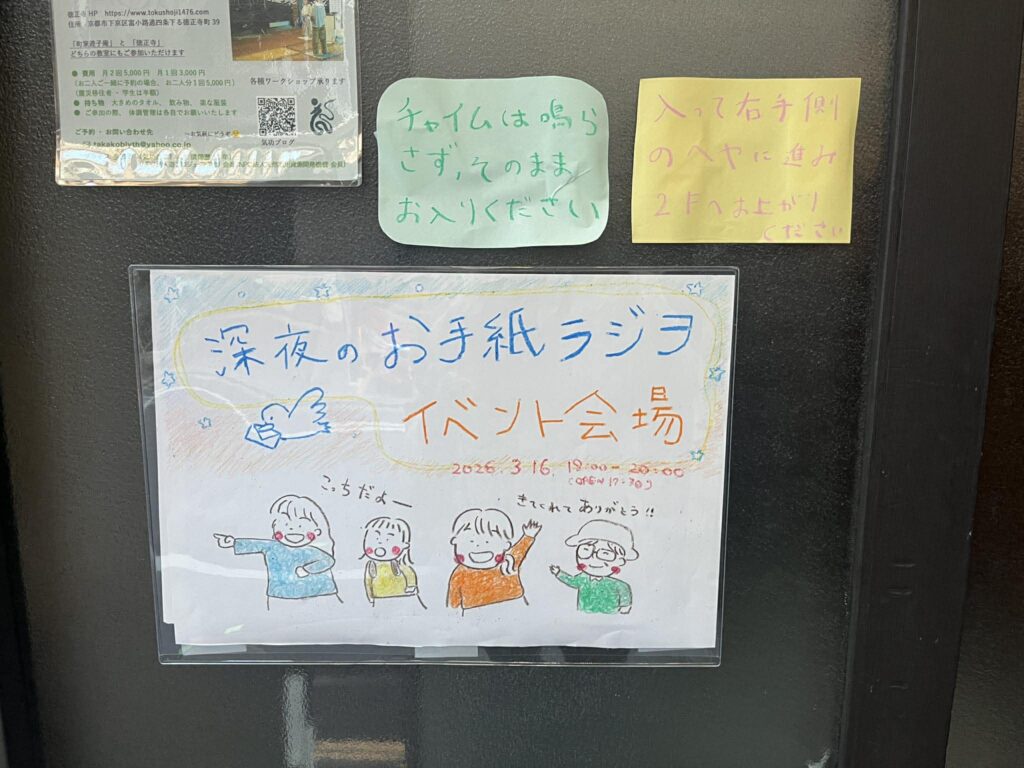 徳正寺 HP　https://www.tokushoji1476.com
住所：京都市下京区富小路通四条下る徳正寺町 39
「町家遊子庵」 と 「徳正寺」
どちらの教室にもご参加いただけます
● 費用　月２回5,000円　月１回3,000円
（お二人ご一緒に予約の場合、お二人分１回5,000円）
（震災移住者・学生は半額）
● 持ち物　大きめのタオル、飲み物、楽な服装
● ご参加の際、体調管理は各自でお願いいたします
ご予約・お問い合わせ先
takakoblyth@yahoo.co.jp
各種ワークショップ承ります
～お気軽にどうぞ
気功ブログ
チャイムは鳴ら
さず,そのまま
お入りください
入って右手側
のヘヤに進み
2Fへお上がり
ください
深夜のお手紙ラジヲ
イベント会場
2026.3.16. 18:00-20:00
(OPEN 17:30)
こっちだよー
きてくれて ありがとう!!